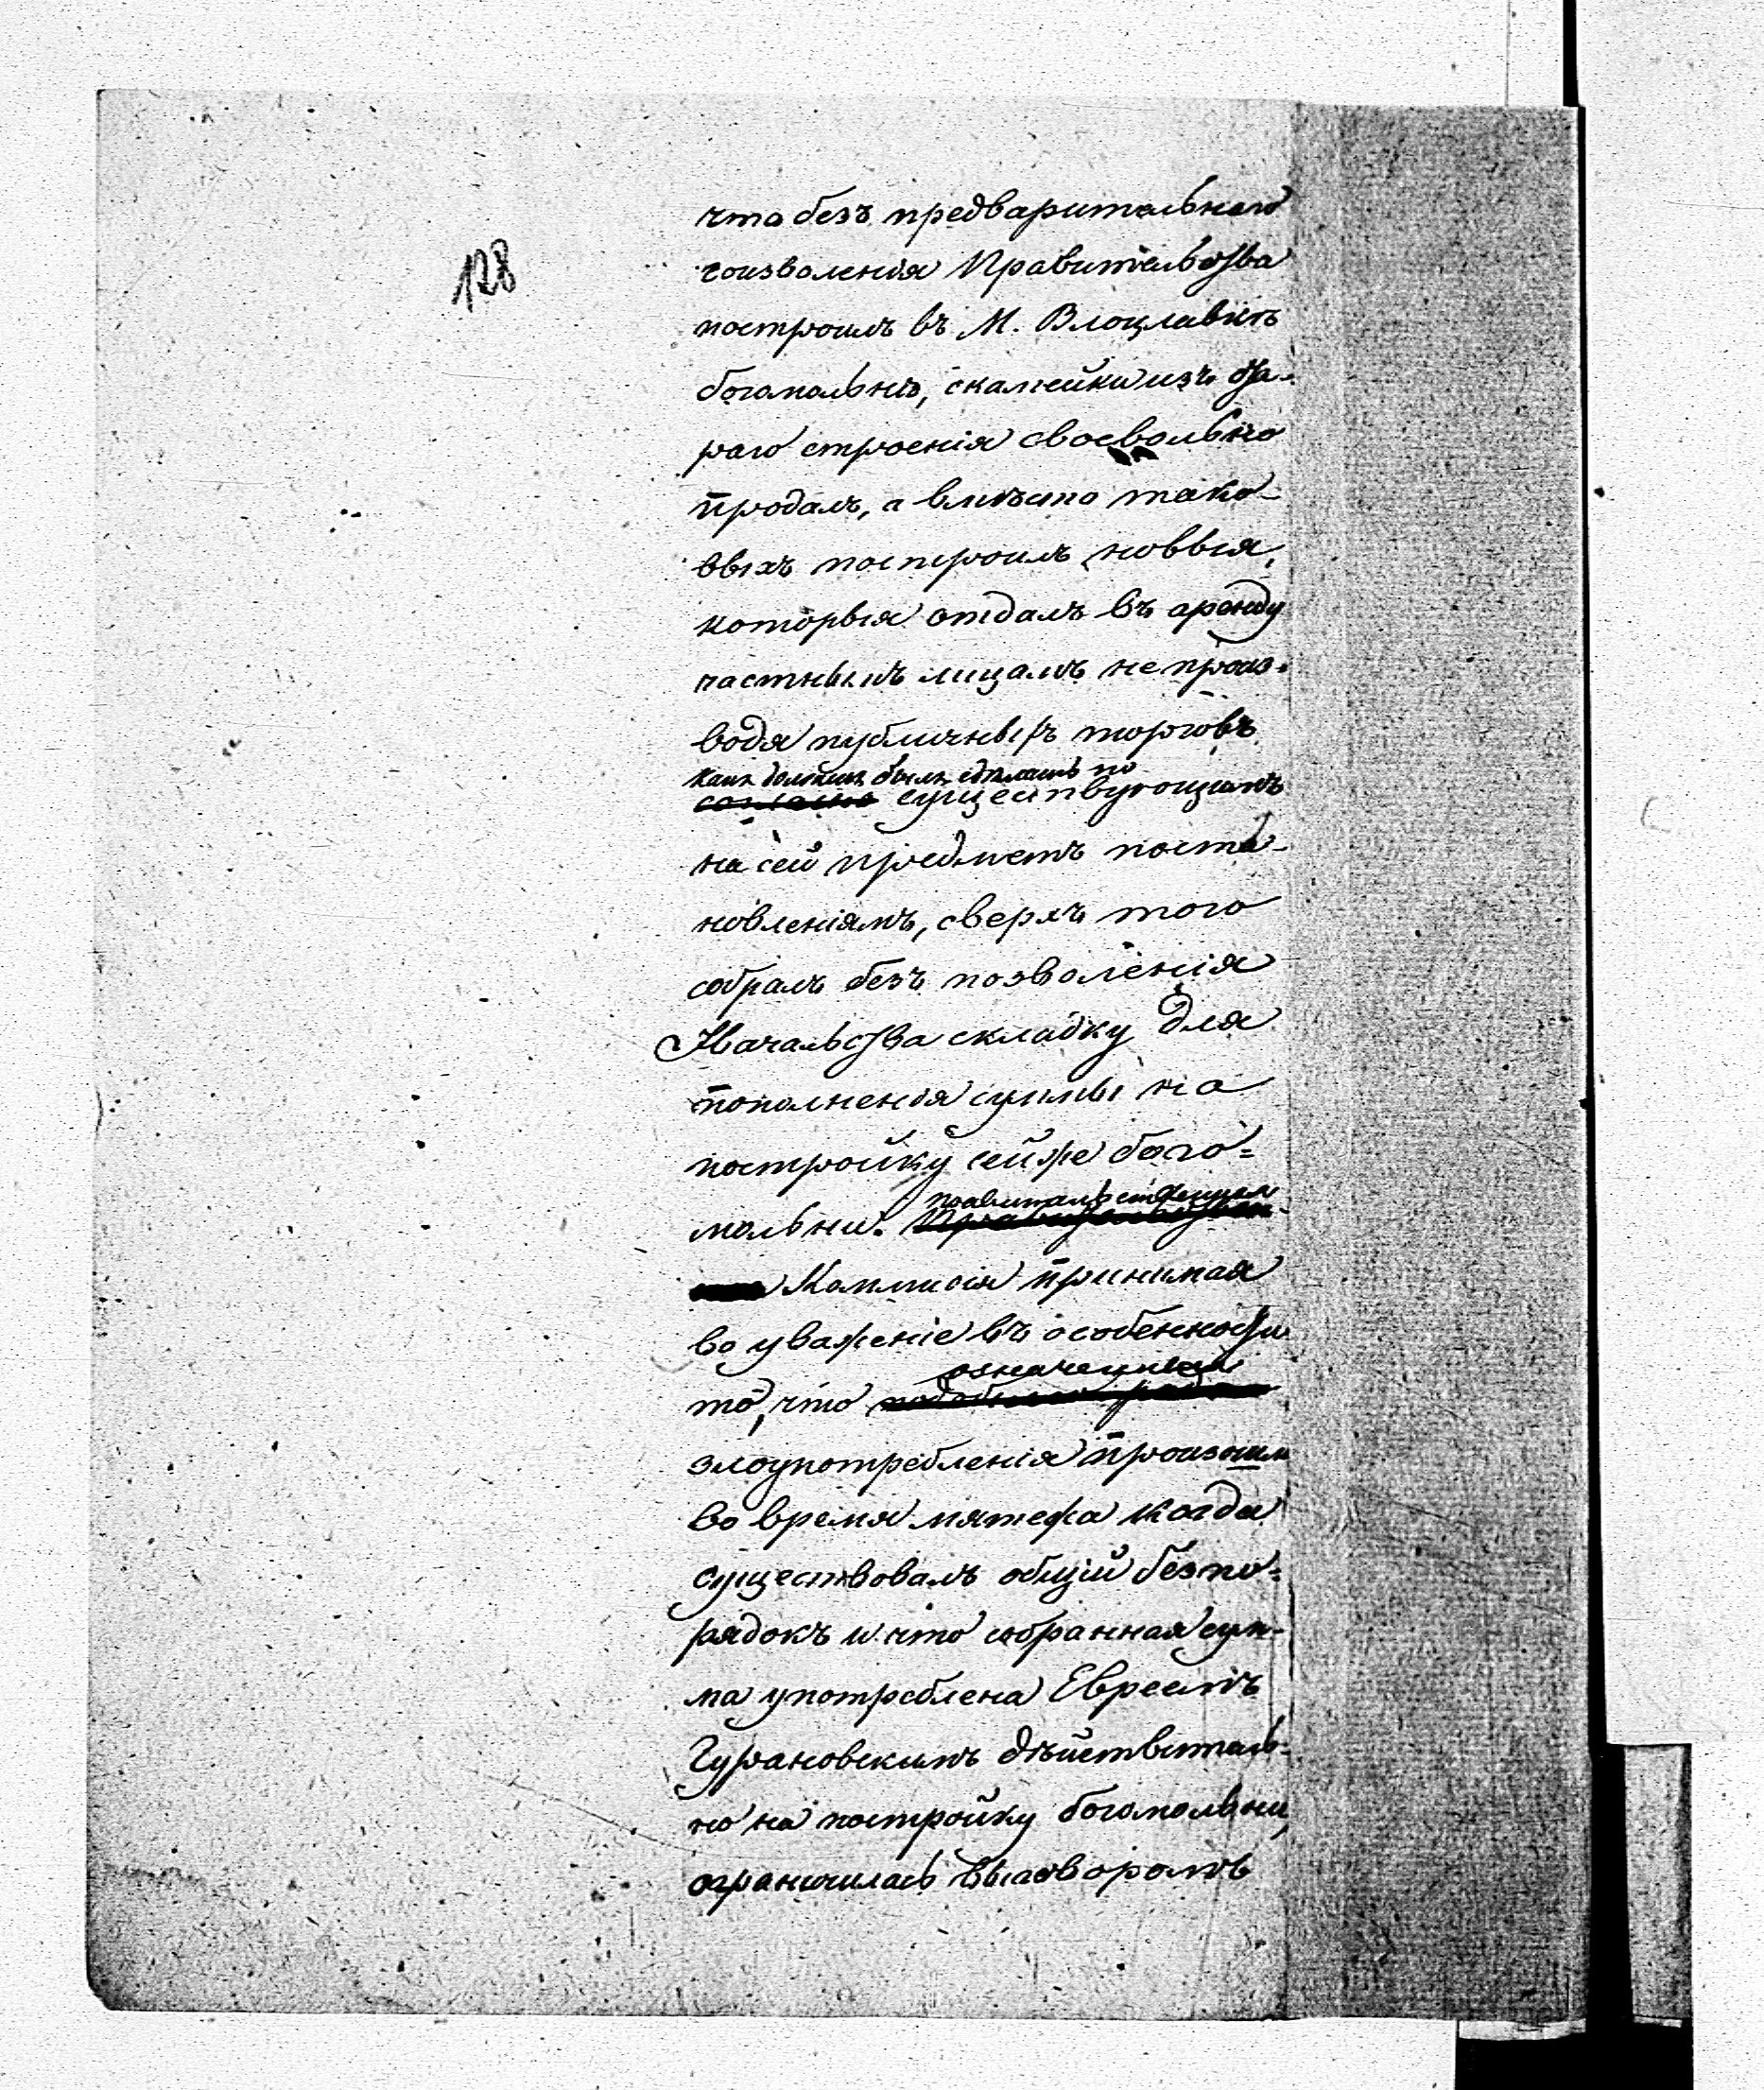 128
что безъ предварительнаго
соизволенія Правительства
построилъ въ М. Влоцлавкѣ
богомольню, скамейки изъ ста-
раго строенія своевольно
продалъ, а вмѣсто тако-
выхъ построилъ новыя,
которыя отдалъ въ аренду
частнымъ лицамъ не произ-
водя публичныхъ торговъ
какъ долженъ былъ сдѣлать по
согласно существующимъ
на сей предметъ поста-
новленіямъ, сверхъ того
собралъ безъ позволенія
Начальства складку для
пополненія суммы на
постройку сей же бого=
мольни. Правительственная
Коммисія принимая
во уваженіе въ особенности
означенныя
то, что
злоупотребленія произошли
во время мятежа когда
существовалъ общій безпо=
рядокъ и что собранная сум-
ма употреблена Евреемъ
Гурановскимъ дѣйствитель-
но на постройку богомольни,
ограничилась выговоромъ